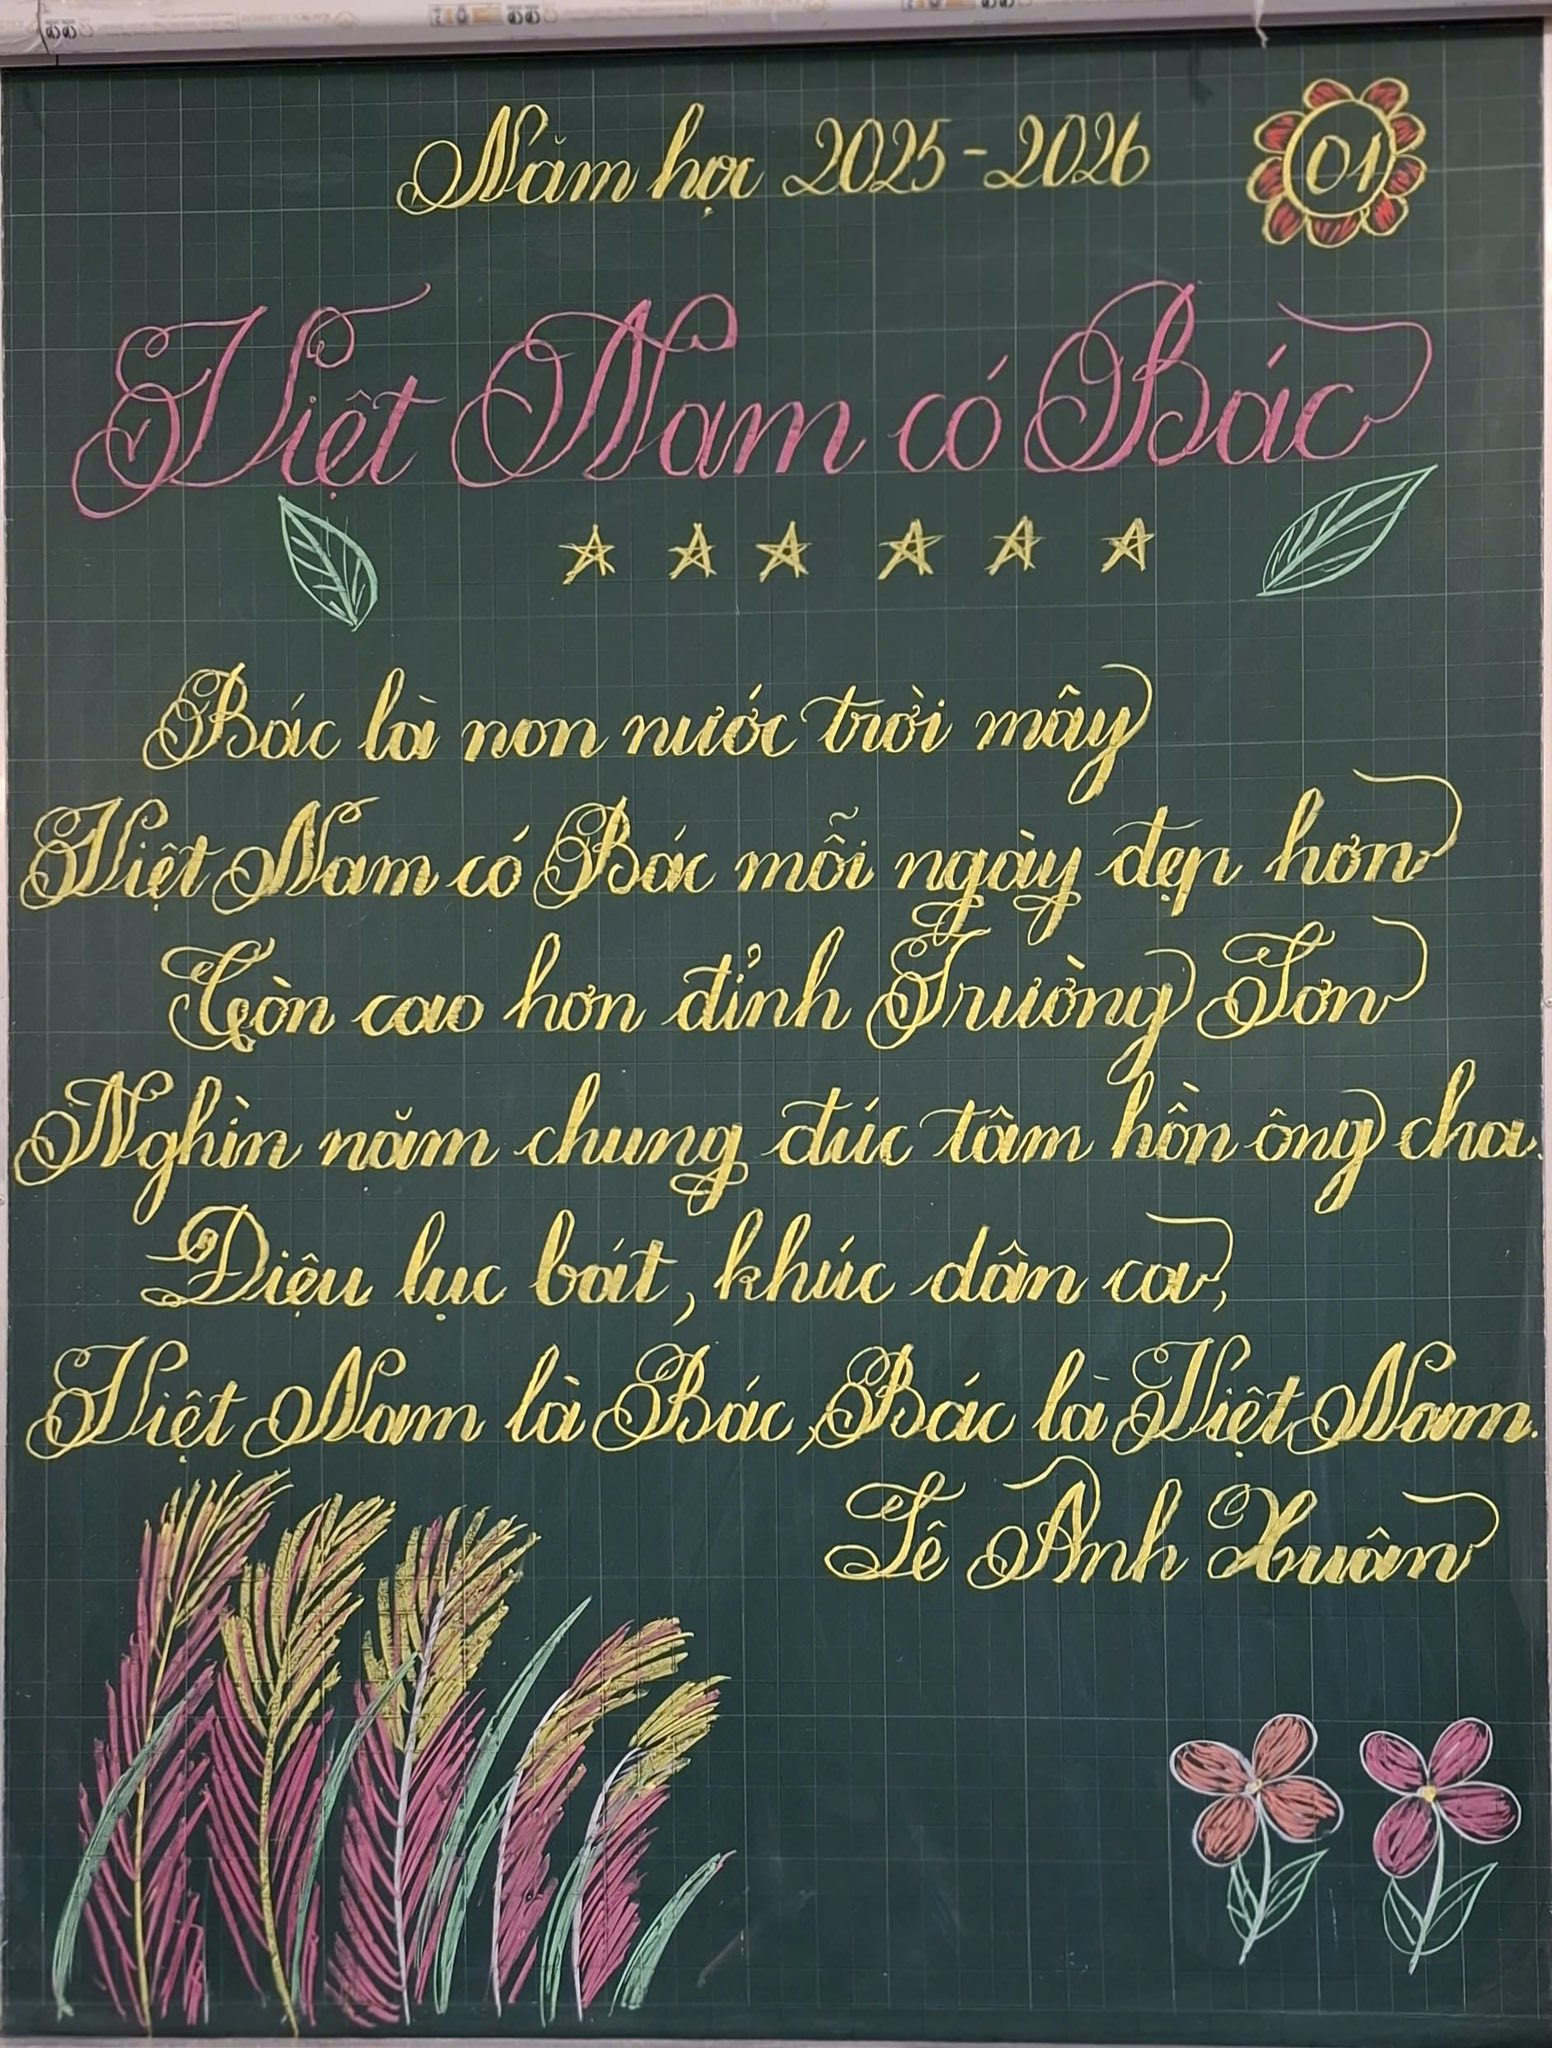 Năm học 2025-2026
01
Việt Nam có Bác
Bác là non nước trời mây
Việt Nam có Bác mỗi ngày đẹp hơn
Còn cao hơn đỉnh Trường Sơn
Nghìn năm chung đúc tâm hồn ông cha.
Điệu lục bát, khúc dân ca,
Việt Nam là Bác, Bác là Việt Nam.
Lê Anh Xuân